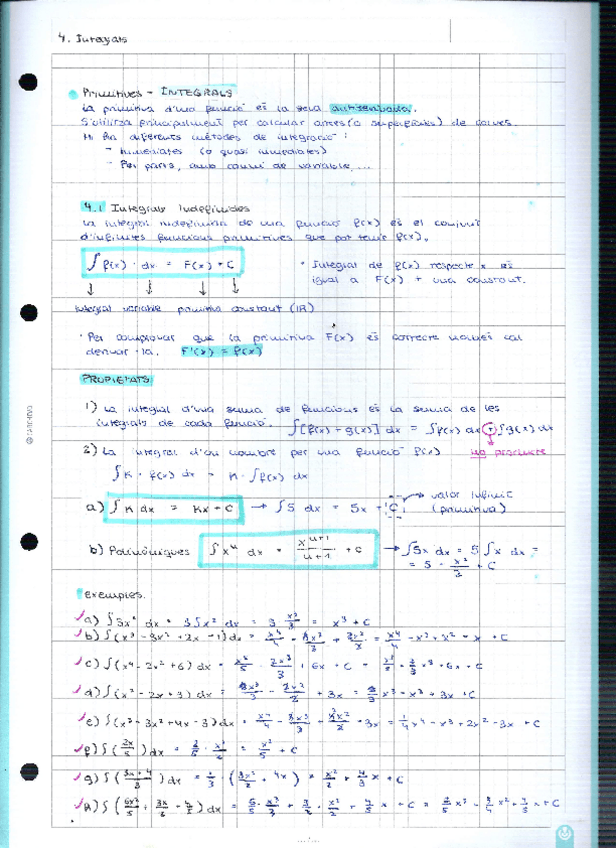 4. Integrals
Primitives - INTEGRALS
La primitiva d'una funció és la seva antiderivada.
S'utilitza principalment per calcular àrees (o superfícies) de corves.
Hi ha diferents mètodes de integració:
- Immediates (o quasi immediates)
- Per parts, amb canvi de variable, ...
4.1 Integrals Indefinides
La integral indefinida de una funció f(x) és el conjunt
d'infinites funcions primitives que pot tenir f(x).
∫ f(x) · dx = F(x) + C
· Integral de f(x) respecte x és
igual a F(x) + una constant.
integral variable primitiva constant (IR)
· Per comprovar que la primitiva F(x) és correcte només cal
derivar-la. F'(x) = f(x)
PROPIETATS
1) La integral d'una suma de funcions és la suma de les
integrals de cada funció. ∫[f(x) + g(x)] dx = ∫f(x) dx + ∫g(x) dx
no producte
2) La integral d'un nombre per una funció f(x)
∫ K · f(x) dx = K · ∫ f(x) dx
a) ∫ K dx = Kx + C → ∫ 5 dx = 5x + C → valor infinit
(primitiva)
b) Polinòmiques ∫ xⁿ dx = xⁿ⁺¹/n+1 + C → ∫5x dx = 5 ∫ x dx =
= 5 · x²/2 + C
Exemples.
a) ∫ 3x² dx = 3 ∫ x² dx = 3 x³/3 = x³ + C
b) ∫ (x³ - 3x² + 2x - 1) dx = x⁴/4 - 3x³/3 + 2x²/2 = x⁴/4 - x³ + x² - x + C
c) ∫ (x⁴ - 2x² + 6) dx = x⁵/5 - 2x³/3 + 6x + C = x⁵/5 - 2/3 x³ + 6x + C
d) ∫ (x² - 2x + 3) dx
e) ∫ (x³ - 3x² + 4x - 3) dx = 1/4 x⁴ - x³ + 2x² - 3x + C
f) ∫ (2x/5) dx = 2/5 · x²/2 = x²/5 + C
g) ∫ (3x + 4/3) dx = 1/3 · (3x²/2 + 4x) = x²/2 + 4/3 x + C